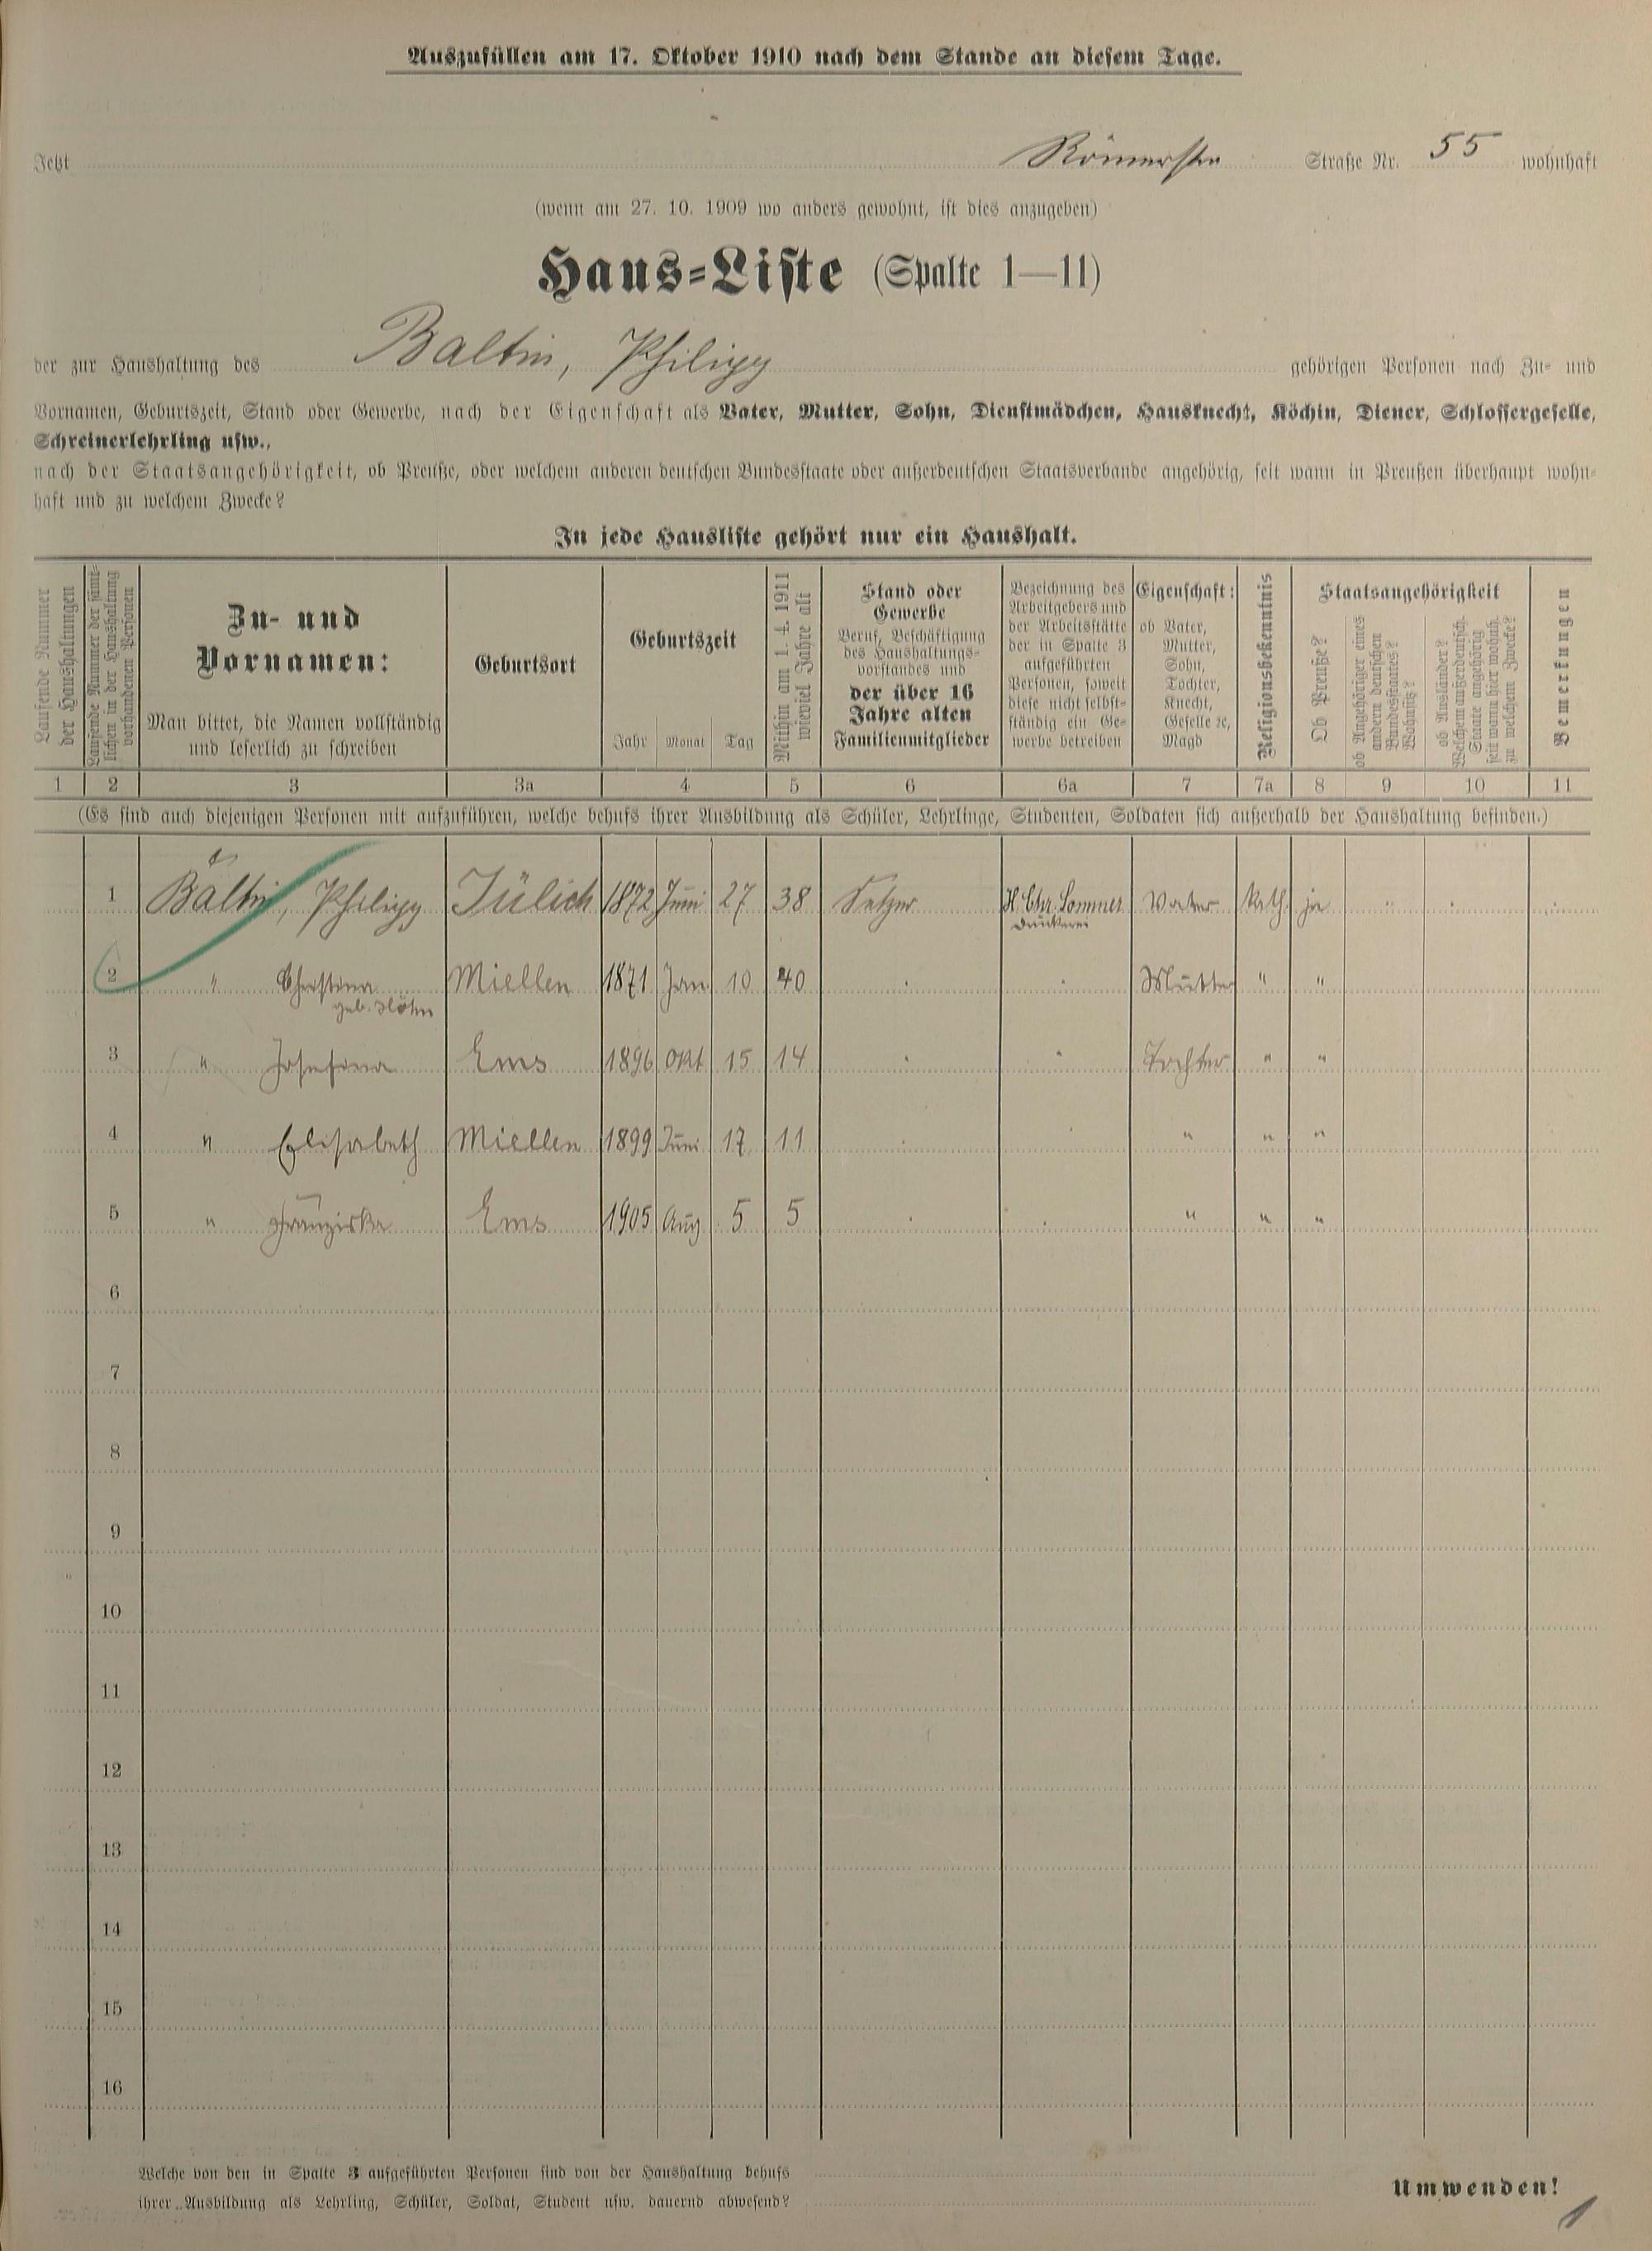 Auszufüllen am 17. Oktober 1910 nach dem Stande an diesem Tage.
Jetzt Römerstra Straße Nr. 55 wohnhaft
(wenn am 27. 10. 1909 wo anders gewohnt, ist dies anzugeben)
Haus-Liste (Spalte 1—11)
der zur Haushaltung des Baltin, Philipp gehörigen Personen nach Zu- und
Vornamen, Geburtszeit, Stand oder Gewerbe, nach der Eigenschaft als Vater, Mutter, Sohn, Dienstmädchen, Hausknecht, Köchin, Diener, Schlossergeselle,
Schreinerlehrling usw.,
nach der Staatsangehörigkeit, ob Preuße, oder welchem anderen deutschen Bundesstaate oder außerdeutschen Staatsverbande angehörig, seit wann in Preußen überhaupt wohn-
haft und zu welchem Zwecke?
In jede Hausliste gehört nur ein Haushalt.
Laufende Nummer
der Haushaltungen
Laufende Nummer der sämt-
lichen in der Haushaltung
vorhandenen Personen
Zu- und
Vornamen:
Man bittet, die Namen vollständig
und leserlich zu schreiben
Geburtsort
Geburtszeit
Jahr Monat Tag
Mithin am 1. 4. 1911
wieviel Jahre alt
Stand oder
Gewerbe
Beruf, Beschäftigung
des Haushaltungs-
vorstandes und
der über 16
Jahre alten
Familienmitglieder
Bezeichnung des
Arbeitgebers und
der Arbeitsstätte
der in Spalte 3
aufgeführten
Personen, soweit
diese nicht selbst-
ständig ein Ge-
werbe betreiben
Eigenschaft:
ob Vater,
Mutter,
Sohn,
Tochter,
Knecht,
Geselle ec,
Magd
Religionsbekenntnis
Staatsangehörigkeit
Ob Preuße?
ob Angehöriger eines
andern deutschen
Bundesstaates?
Wohnsitz?
ob Ausländer?
Welchem außerdeutsch.
Staate angehörig
seit wann hier wohnh.
zu welchem Zwecke?
Bemerkungen
1 2 3 3a 4 5 6 6a 7 7a 8 9 10 11
(Es sind auch diejenigen Personen mit aufzuführen, welche behufs ihrer Ausbildung als Schüler, Lehrlinge, Studenten, Soldaten sich außerhalb der Haushaltung befinden.)
1 Baltin, Philipp Jülich 1872 Juni 27 38 Setzer H. Chr. Sommer Vater kath. ja
Druckerei
2 " Christina Miellen 1871 Jan 10 40 Mutter " "
geb. Höhn
3 " Josefina Ems 1896 Okt 15 14 Tochter " "
4 " Elisabeth Miellen 1899 Juni 17 11 " " "
5 " Franziska Ems 1905 Aug 5 5 " " "
6
7
8
9
10
11
12
13
14
15
16
Welche von den in Spalte 3 aufgeführten Personen sind von der Haushaltung behufs
ihrer Ausbildung als Lehrling, Schüler, Soldat, Student usw. dauernd abwesend?
Umwenden!
1